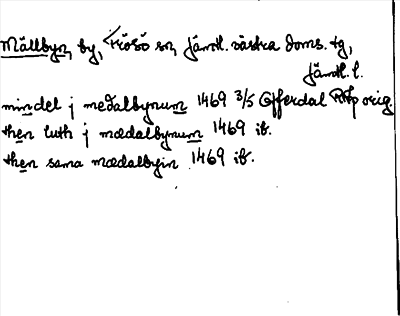 Mällbyn, by, Frösö sn, Jämtl. västra doms. tg,
Jämtl. l.
min del j medalbynum 1469 3/5 Offerdal RAp orig.
then luth j mædalbynum 1469 ib.
then sama mædalbyin 1469 ib.